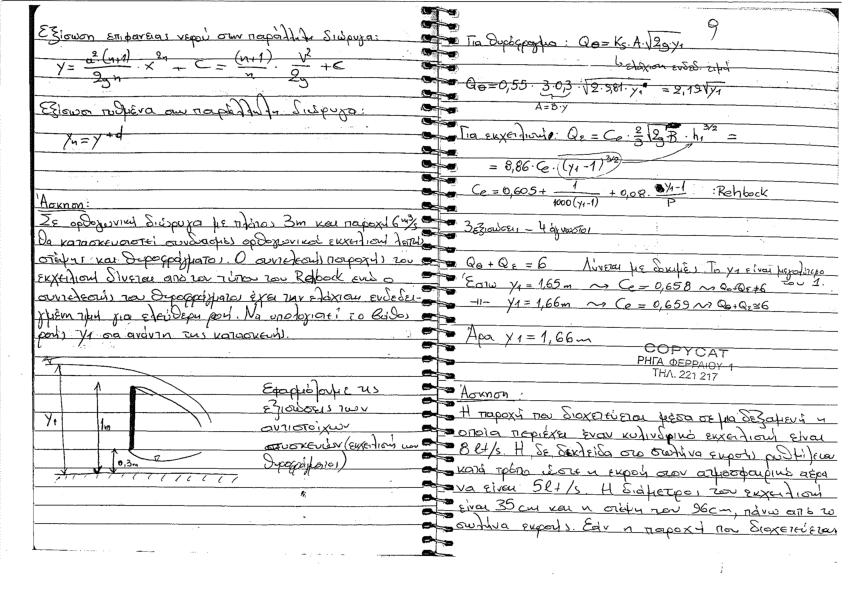 Εξίσωση επιφανείας νερού στην παράλληλη διώρυγα:
y = a²(n+1)/2gn · x²ⁿ + C = (n+1)/n · V²/2g + C
Εξίσωση πυθμένα στην παράλληλη διώρυγα:
yₙ = y + d
Άσκηση:
Σε ορθογωνική διώρυγα με πλάτος 3m και παροχή 6 m³/s
θα κατασκευαστεί συνδυασμός ορθογωνικού εκχειλιστή λεπτής
στέψης και θυροφράγματος. Ο συντελεστής παροχής του
εκχειλιστή δίνεται από τον τύπο του Rehbock ενώ ο
συντελεστής του θυροφράγματος έχει την ελάχιστη ενδεδει-
γμένη τιμή για ελεύθερη ροή. Να υπολογιστεί το βάθος
ροής y1 στα ανάντη της κατασκευής.
y1
1m
0,3m
Εφαρμόζουμε τις
εξισώσεις των
αντιστοίχων
συσκευών (εκχειλιστή και
θυροφράγματος)
9
Για θυρόφραγμα: Qθ = Ks · A · √2gy1
↳ ελάχιστη ενδεδ. τιμή
Qθ = 0,55 · 3·0,3 · √2·9,81·y1 = 2,19√y1
A=B·y
Για εκχειλιστή: Qε = Ce · 2/3 √2g B · h1^3/2 =
= 8,86 · Ce · (y1-1)^3/2
Ce = 0,605 + 1/1000(y1-1) + 0,08 · y1-1/P : Rehbock
3 εξισώσεις - 4 άγνωστοι
Qθ + Qε = 6 Λύνεται με δοκιμές. Το y1 είναι μεγαλύτερο
του 1.
Έστω y1 = 1,65m ⇝ Ce = 0,658 ⇝ Qθ+Qε≠6
-||- y1 = 1,66m ⇝ Ce = 0,659 ⇝ Qθ+Qε≅6
Άρα y1 = 1,66m
COPYCAT
ΡΗΓΑ ΦΕΡΡΑΙΟΥ 1
ΤΗΛ. 221 217
Άσκηση:
Η παροχή που διοχετεύεται μέσα σε μια δεξαμενή η
οποία περιέχει έναν κυλινδρικό εκχειλιστή είναι
8 lt/s. Η δε δικλείδα στο σωλήνα εκροής ρυθμίζεται
κατά τρόπο ώστε η εκροή στον ατμοσφαιρικό αέρα
να είναι 5lt/s. Η διάμετρος του εκχειλιστή
είναι 35cm και η στέψη του 96cm, πάνω από το
σωλήνα εκροής. Εάν η παροχή που διοχετεύεται